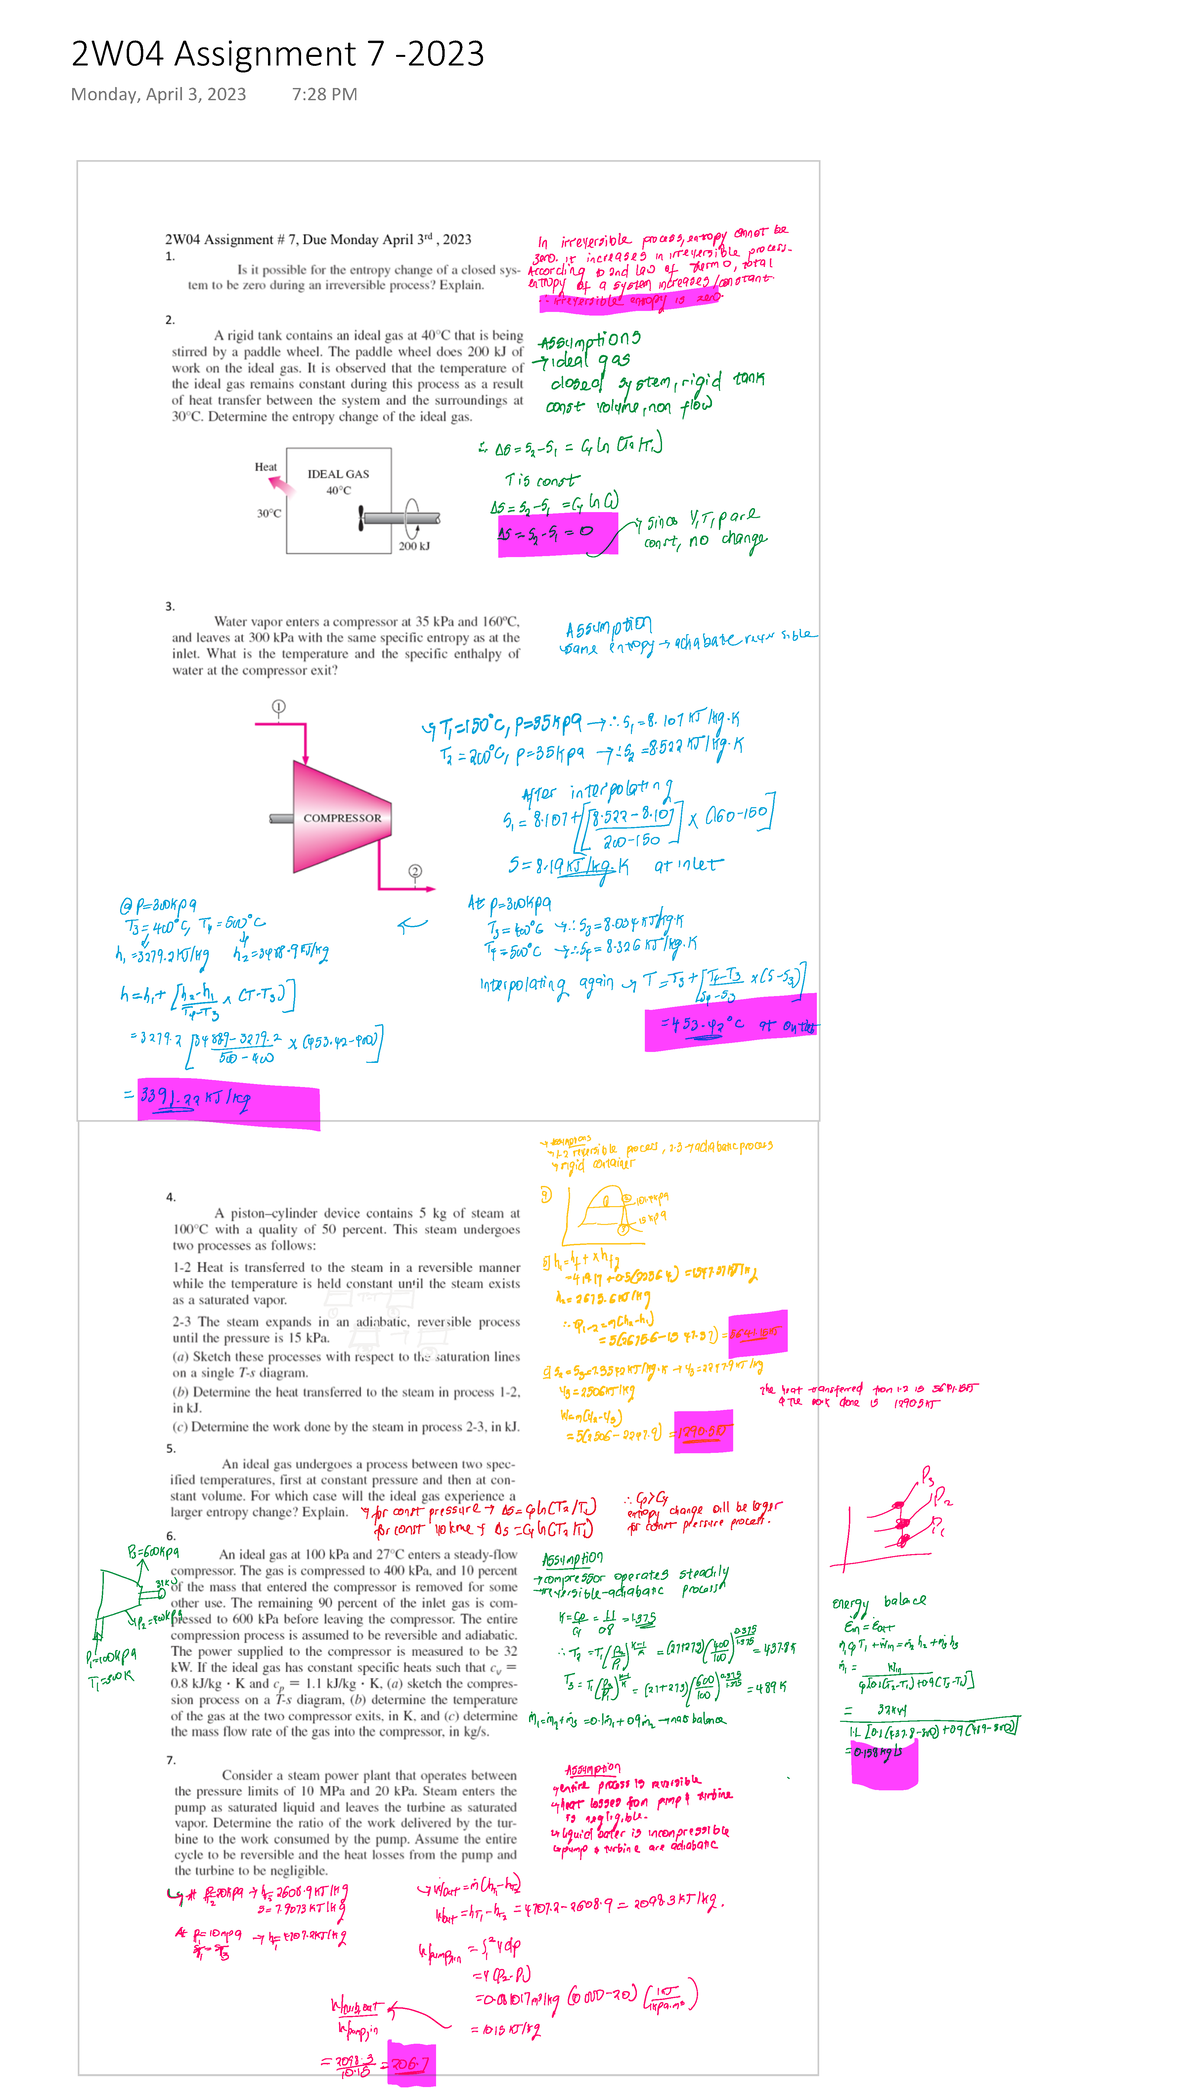 2W04 Assignment 7 -2023
Monday, April 3, 2023 7:28 PM
2W04 Assignment # 7, Due Monday April 3rd , 2023
1.
Is it possible for the entropy change of a closed sys-
tem to be zero during an irreversible process? Explain.
In irreversible process, entropy cannot be
zero. it increases in irreversible process.
According to 2nd law of thermo, total
entropy of a system increases/constant.
∴ irreversible entropy is zero.
2.
A rigid tank contains an ideal gas at 40°C that is being
stirred by a paddle wheel. The paddle wheel does 200 kJ of
work on the ideal gas. It is observed that the temperature of
the ideal gas remains constant during this process as a result
of heat transfer between the system and the surroundings at
30°C. Determine the entropy change of the ideal gas.
Assumptions
→ ideal gas
closed system, rigid tank
const volume, non flow
Heat
IDEAL GAS
40°C
30°C
200 kJ
∴ ΔS = S2-S1 = Cv ln (T2/T1)
T is const
ΔS = S2-S1 = Cv ln (1)
ΔS = S2-S1 = 0
const, no change
3.
Water vapor enters a compressor at 35 kPa and 160°C,
and leaves at 300 kPa with the same specific entropy as at the
inlet. What is the temperature and the specific enthalpy of
water at the compressor exit?
Assumption
same entropy → adiabatic reversible
COMPRESSOR
1
2
T1=150°C, P=35kpa → ∴ S1=8.107 KJ/kg.K
T2=200°C, P=35kpa → ∴ S2=8.522 KJ/kg.K
After interpolating
S1 = 8.107+[[8.522-8.107]/200-150] x (160-150)]
S=8.19 KJ/kg.K at inlet
At P=300kpa
T3=400°C → ∴ S3=8.034 KJ/kg.K
T4=500°C → ∴ S4=8.326 KJ/kg.K
Interpolating again → T=T3+[T4-T3/S4-S3 x(S-S3)]
=453.42°C at outlet
@ P=300kpa
T3=400°C, T4=500°C
h1=3279.2KJ/kg h2=3488.9KJ/kg
h=h1+[h2-h1/T4-T3 x (T-T3)]
=3391.22 KJ/kg
4.
A piston–cylinder device contains 5 kg of steam at
100°C with a quality of 50 percent. This steam undergoes
two processes as follows:
1-2 Heat is transferred to the steam in a reversible manner
while the temperature is held constant until the steam exists
as a saturated vapor.
2-3 The steam expands in an adiabatic, reversible process
until the pressure is 15 kPa.
(a) Sketch these processes with respect to the saturation lines
on a single T-s diagram.
(b) Determine the heat transferred to the steam in process 1-2,
in kJ.
(c) Determine the work done by the steam in process 2-3, in kJ.
→ 1-2 reversible process, 2-3 → adiabatic process
→ rigid container
15 kpa
h1=hf + xhfg
h2= 2675.6KJ/kg
W=m(u2-u3)
=5(2506-2247.9) =1290.5KJ
The heat transferred from 1-2 is 5641.15KJ
& The work done is 1290.5KJ
5.
An ideal gas undergoes a process between two spec-
ified temperatures, first at constant pressure and then at con-
stant volume. For which case will the ideal gas experience a
larger entropy change? Explain.
for const pressure → ΔS=Cp ln(T2/T1)
for const volume → ΔS=Cv ln(T2/T1)
∴ Cp>Cv
entropy change will be larger
for const pressure process.
6.
An ideal gas at 100 kPa and 27°C enters a steady-flow
compressor. The gas is compressed to 400 kPa, and 10 percent
of the mass that entered the compressor is removed for some
other use. The remaining 90 percent of the inlet gas is com-
pressed to 600 kPa before leaving the compressor. The entire
compression process is assumed to be reversible and adiabatic.
The power supplied to the compressor is measured to be 32
kW. If the ideal gas has constant specific heats such that cv =
0.8 kJ/kg · K and cp = 1.1 kJ/kg · K, (a) sketch the compres-
sion process on a T-s diagram, (b) determine the temperature
of the gas at the two compressor exits, in K, and (c) determine
the mass flow rate of the gas into the compressor, in kg/s.
P3=600kpa
P1=100kpa
T1=300K
Assumption
→ compressor operates steadily
→ reversible-adiabatic process
K=Cp/Cv = 1.1/0.8 =1.375
P3
P2
P1
energy balance
Ein = Eout
=0.158 kg/s
7.
Consider a steam power plant that operates between
the pressure limits of 10 MPa and 20 kPa. Steam enters the
pump as saturated liquid and leaves the turbine as saturated
vapor. Determine the ratio of the work delivered by the tur-
bine to the work consumed by the pump. Assume the entire
cycle to be reversible and the heat losses from the pump and
the turbine to be negligible.
Assumption
→ entire process is reversible
→ heat losses from pump & turbine
is negligible.
→ liquid water is incompressible
→ pump & turbine are adiabatic
=2098.3/10.15 =206.7